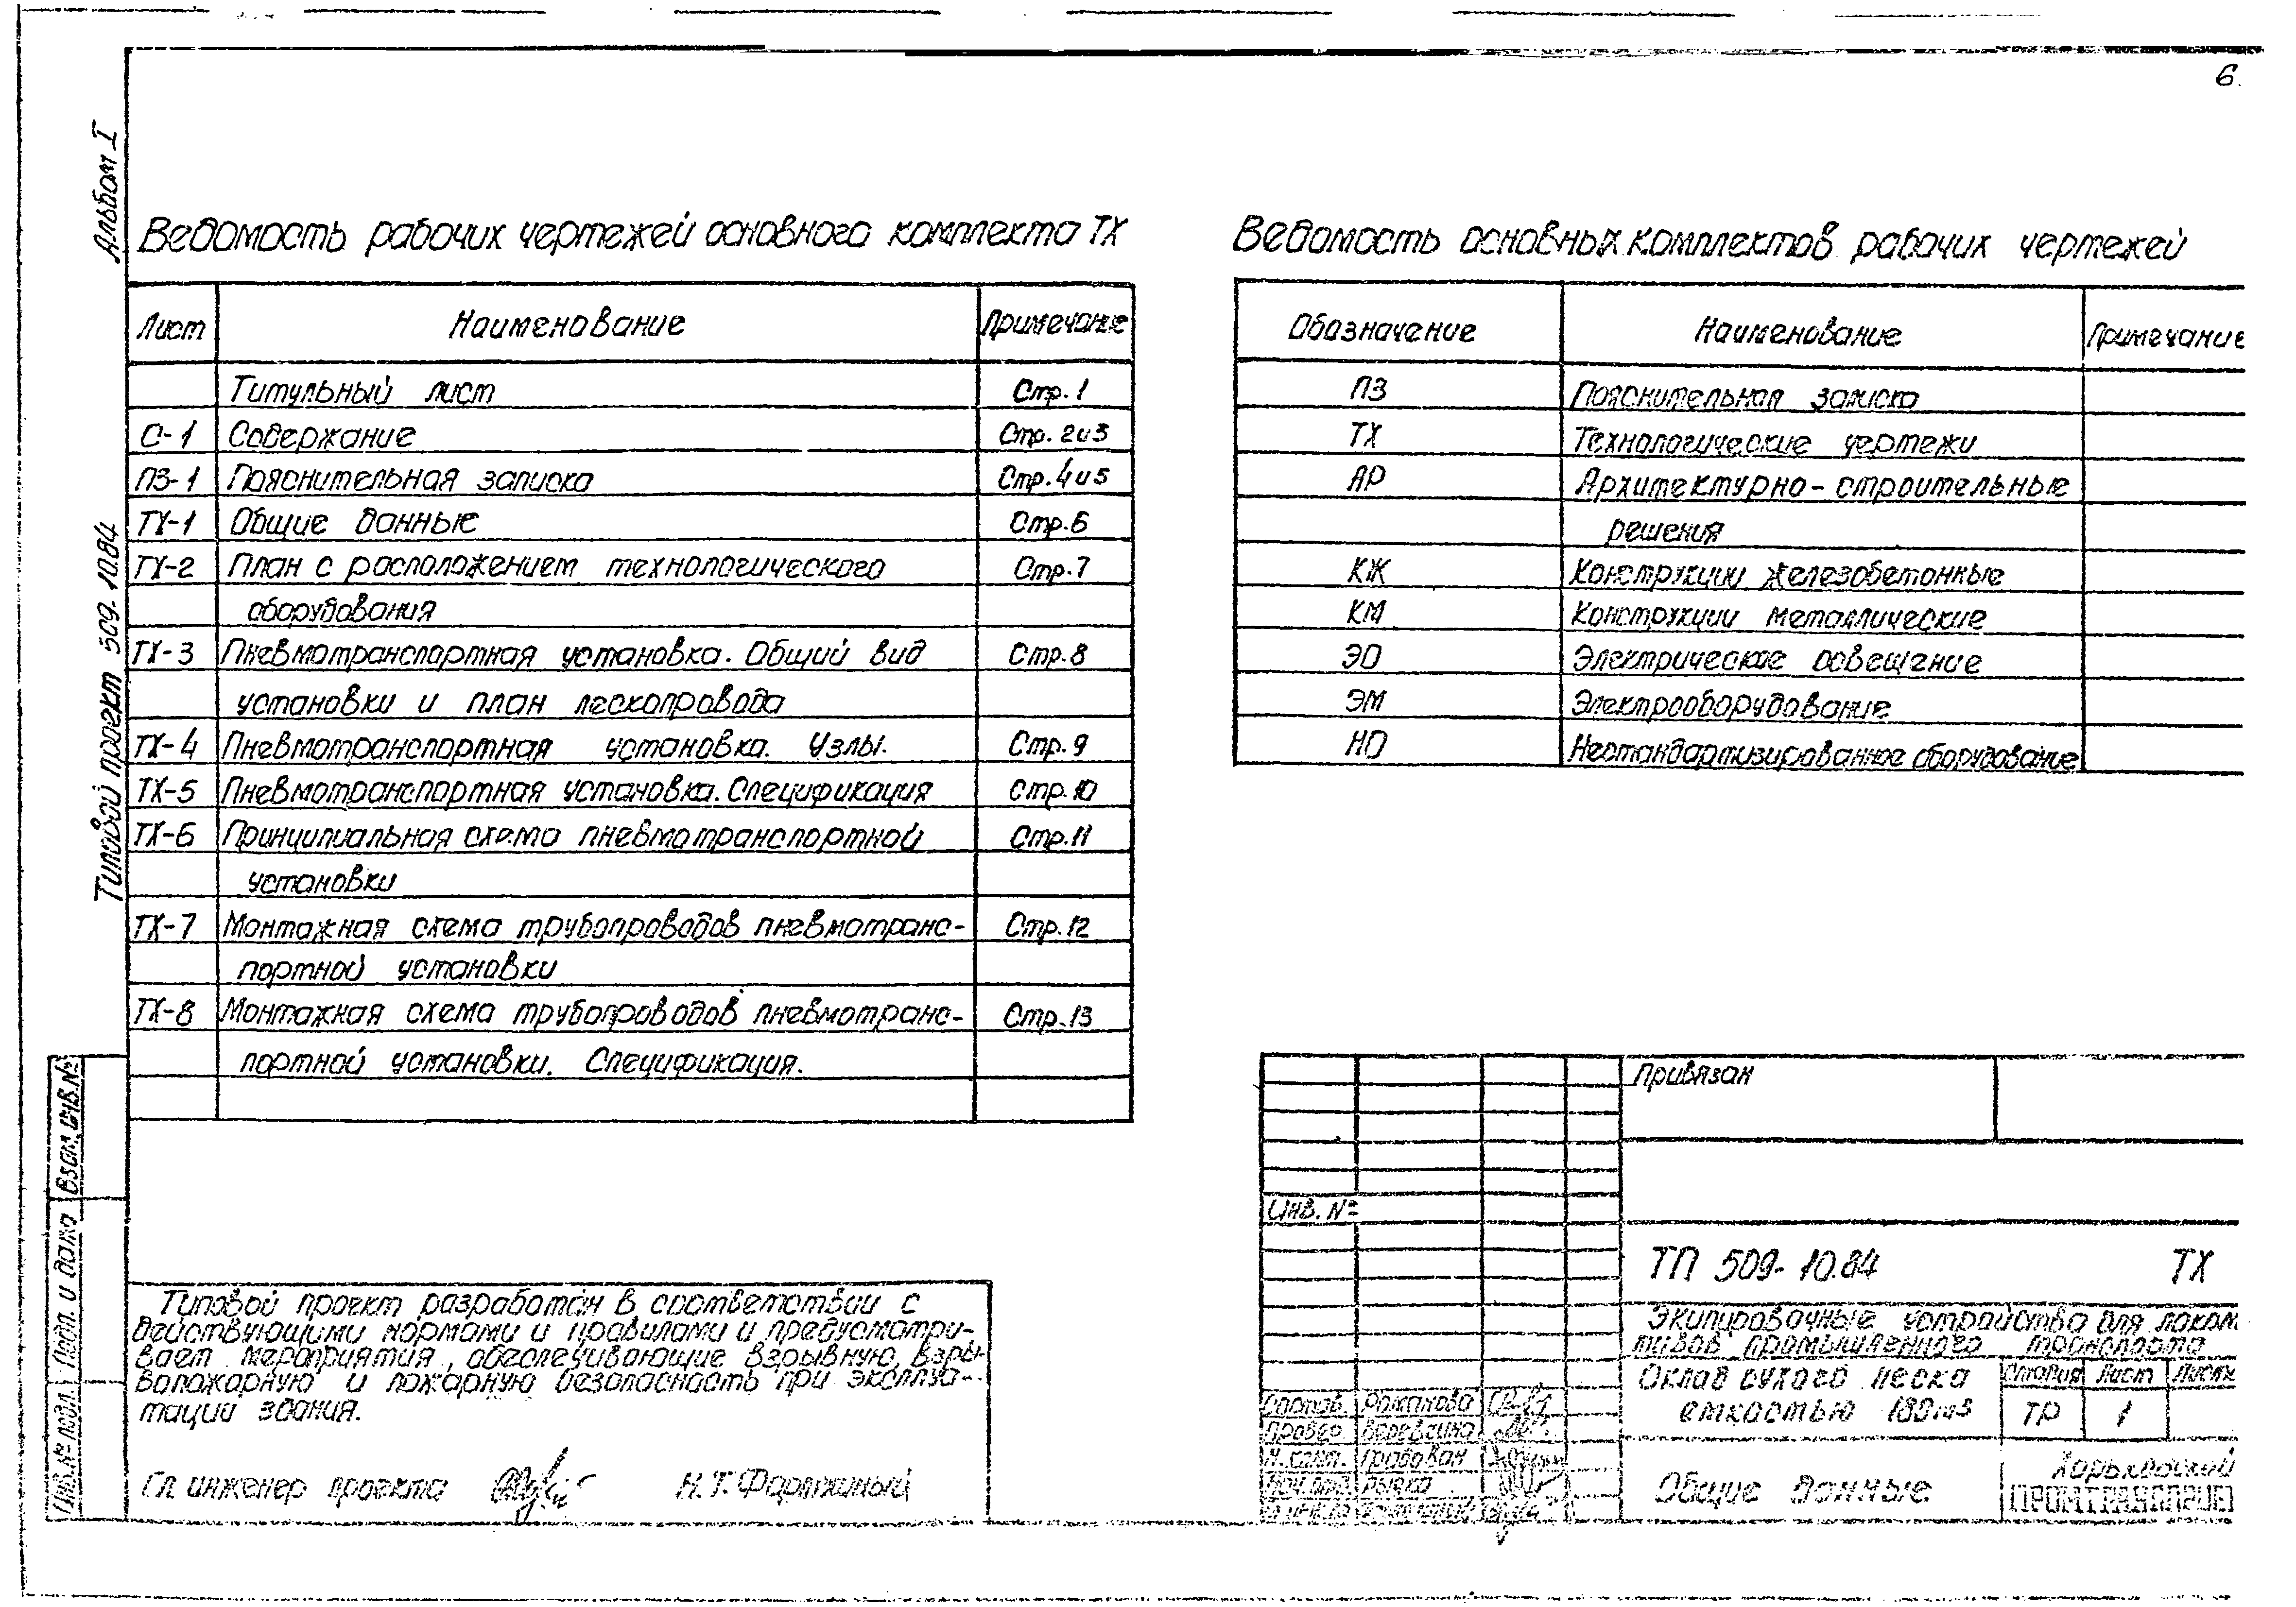 6.
Альбом I
Типовой проект 509-10.84
Ведомость рабочих чертежей основного комплекта ТХ
Лист Наименование Примечание
Титульный лист Стр. 1
С-1 Содержание Стр. 2и3
ПЗ-1 Пояснительная записка Стр. 4и5
ТХ-1 Общие данные Стр. 6
ТХ-2 План с расположением технологического Стр. 7
оборудования
ТХ-3 Пневмотранспортная установка. Общий вид Стр. 8
установки и план пескопровода
ТХ-4 Пневмотранспортная установка. Узлы. Стр. 9
ТХ-5 Пневмотранспортная установка. Спецификация Стр. 10
ТХ-6 Принципиальная схема пневмотранспортной Стр. 11
установки
ТХ-7 Монтажная схема трубопроводов пневмотранс- Стр. 12
портной установки
ТХ-8 Монтажная схема трубопроводов пневмотранс- Стр. 13
портной установки. Спецификация.
Ведомость основных комплектов рабочих чертежей
Обозначение Наименование Примечание
ПЗ Пояснительная записка
ТХ Технологические чертежи
АР Архитектурно-строительные
решения
КЖ Конструкции железобетонные
КМ Конструкции металлические
ЭО Электрическое освещение
ЭМ Электрооборудование
НО Нестандартизированное оборудование
Типовой проект разработан в соответствии с
действующими нормами и правилами и предусматри-
вает мероприятия, обеспечивающие взрывную, взры-
вопожарную и пожарную безопасность при эксплуа-
тации здания.
Гл инженер проекта Н.Т.
Инв.№ подл. Подп. и дата Взам.инв.№
Привязан
Инв. №
ТП 509-10.84 ТХ
Экипировочные устройства для локом
тивов промышленного транспорта
Склад сухого песка
емкостью 180м3
Стадия Лист Листов
ТР 1
Состав. Романова
Провер. Веревкина
Н.конт. Грабован
Нач.отд.
Общие данные
Харьковский
ПРОМТРАНСПРОЕ